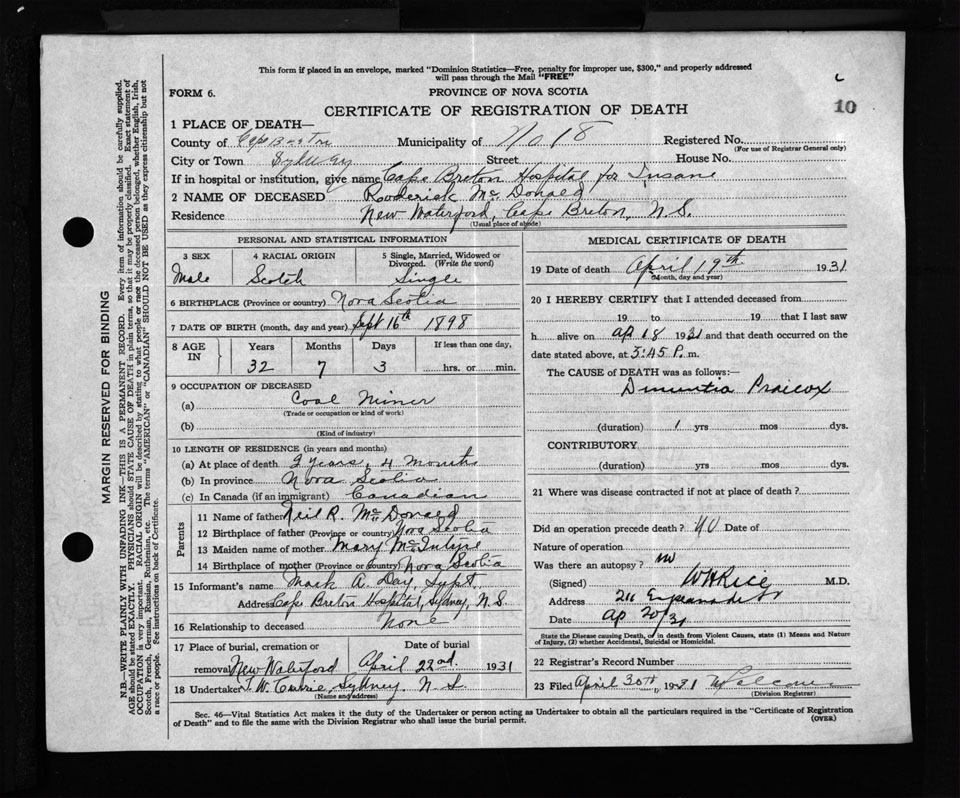 This form if placed in an envelope, marked "Dominion Statistics—Free, penalty for improper use, $300," and properly addressed
will pass through the Mail "FREE"
FORM 6.
PROVINCE OF NOVA SCOTIA
10
CERTIFICATE OF REGISTRATION OF DEATH
1 PLACE OF DEATH—
County of Cape Breton Municipality of No 18 Registered No.
(For use of Registrar General only)
City or Town Sydney Street House No.
If in hospital or institution, give name Cape Breton Hospital for Insane
2 NAME OF DECEASED Roderick Mc Donald
Residence New Waterford, Cape Breton, N.S.
(Usual place of abode)
PERSONAL AND STATISTICAL INFORMATION
3 SEX 4 RACIAL ORIGIN 5 Single, Married, Widowed or Divorced. (Write the word)
Male Scotch Single
6 BIRTHPLACE (Province or country) Nova Scotia
7 DATE OF BIRTH (month, day and year) Sept 16th 1898
8 AGE IN Years Months Days If less than one day,
32 7 3 hrs. or min.
9 OCCUPATION OF DECEASED
(a) Coal Miner
(Trade or occupation or kind of work)
(b)
(Kind of industry)
10 LENGTH OF RESIDENCE (in years and months)
(a) At place of death 2 years, 4 months
(b) In province Nova Scotia
(c) In Canada (if an immigrant) Canadian
Parents
11 Name of father Neil R. Mc Donald
12 Birthplace of father (Province or country) Nova Scotia
13 Maiden name of mother Mary McIntyre
14 Birthplace of mother (Province or country) Nova Scotia
15 Informant's name Mark A. Day, Supt.
Address Cape Breton Hospital, Sydney, N.S.
16 Relationship to deceased None
17 Place of burial, cremation or removal Date of burial
New Waterford April 22nd. 1931
18 Undertaker T. W. Currie, Sydney N.S.
(Name and address)
MEDICAL CERTIFICATE OF DEATH
19 Date of death April 19th 1931
(Month, day and year)
20 I HEREBY CERTIFY that I attended deceased from
19 to 19 that I last saw
h alive on Ap 18 1931 and that death occurred on the
date stated above, at 5:45 P. m.
The CAUSE of DEATH was as follows:—
Dimentia Praicox
(duration) 1 yrs mos dys.
CONTRIBUTORY
(duration) yrs mos dys.
21 Where was disease contracted if not at place of death?
Did an operation precede death? No Date of
Nature of operation
Was there an autopsy? no
(Signed) WH Rice M.D.
Address 211 Esplanade St
Date Ap 20/31
State the Disease causing Death, or in death from Violent Causes, state (1) Means and Nature
of Injury, (2) whether Accidental, Suicidal or Homicidal.
22 Registrar's Record Number
23 Filed April 30th, 1931
(Division Registrar)
Sec. 46—Vital Statistics Act makes it the duty of the Undertaker or person acting as Undertaker to obtain all the particulars required in the "Certificate of Registration
of Death" and to file the same with the Division Registrar who shall issue the burial permit.
(OVER)
MARGIN RESERVED FOR BINDING
N.B.—WRITE PLAINLY WITH UNFADING INK—THIS IS A PERMANENT RECORD. Every item of information should be carefully supplied.
AGE should be stated EXACTLY. PHYSICIANS should STATE CAUSE OF DEATH in plain terms, so that it may be properly classified. Exact statement of
OCCUPATION is very important. RACIAL ORIGIN will be described by stating to what people or race the deceased person belonged, whether English, Irish,
Scotch, French, German, Russian, Ruthenian, etc. The terms "AMERICAN" or "CANADIAN" SHOULD NOT BE USED as they express citizenship but not
a race or people. See instructions on back of Certificate.